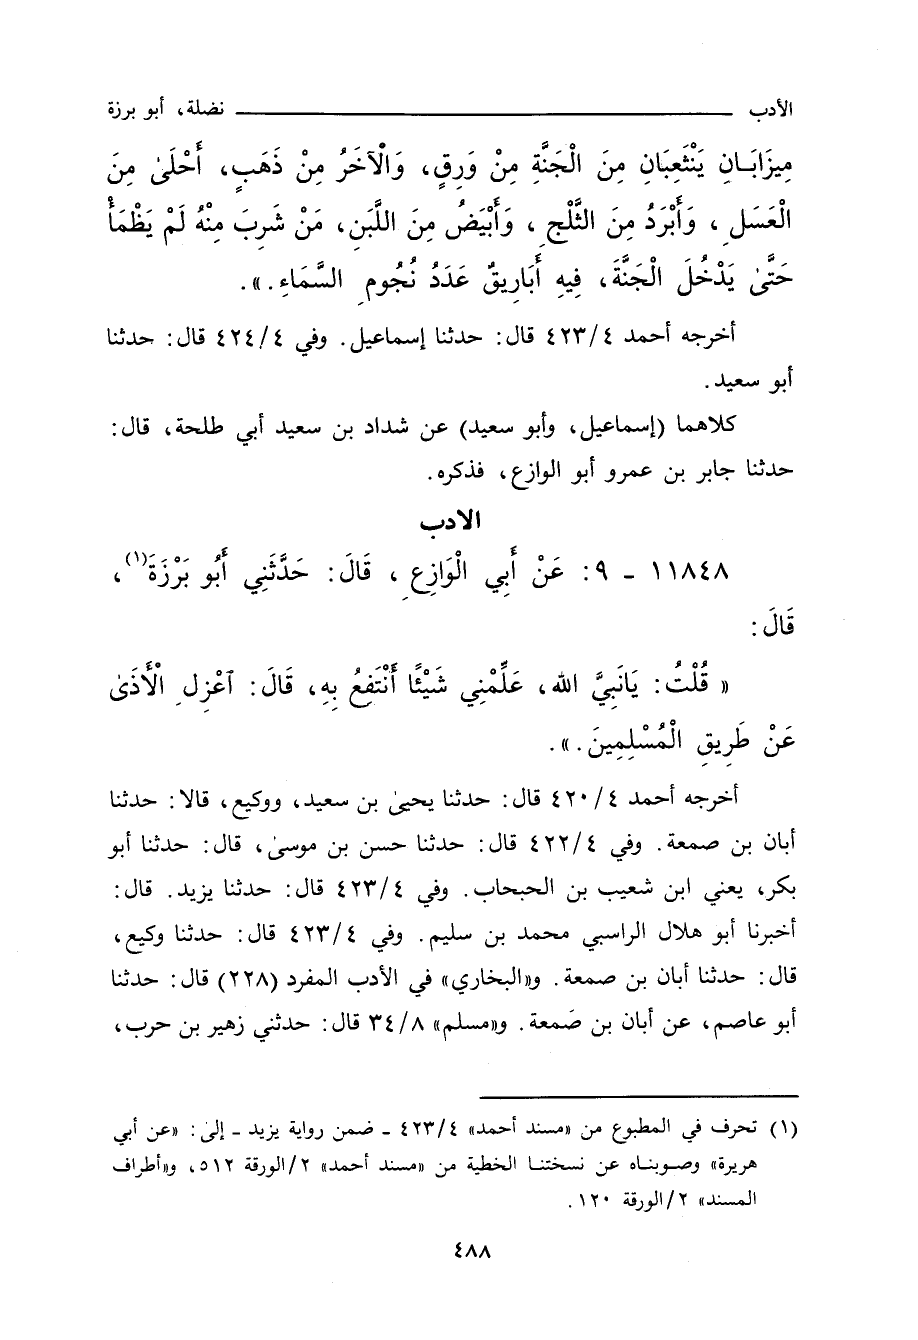 الأدب ــــــــــــــــــــــــــــــــ نضلة، أبو برزة
مِيزَابَـانِ يَنْثَعِبَانِ مِنَ الْجَنَّةِ مِنْ وَرِقٍ، وَالْآخَرُ مِنْ ذَهَبٍ، أَحْلَىٰ مِنَ
الْعَسَلِ، وَأَبْرَدُ مِنَ الثَّلْجِ، وَأَبْيَضُ مِنَ اللَّبَنِ، مَنْ شَرِبَ مِنْهُ لَمْ يَظْمَأْ
حَتَّىٰ يَدْخُلَ الْجَنَّةَ، فِيهِ أَبَارِيقُ عَدَدُ نُجُومِ السَّمَاءِ.».
أخرجه أحمد ٤/٤٢٣ قال: حدثنا إسماعيل. وفي ٤/٤٢٤ قال: حدثنا
أبو سعيد.
كلاهما (إسماعيل، وأبو سعيد) عن شداد بن سعيد أبي طلحة، قال:
حدثنا جابر بن عمرو أبو الوازع، فذكره.
الادب
١١٨٤٨ - ٩: عَنْ أَبِي الْوَازِعِ، قَالَ: حَدَّثَنِي أَبُو بَرْزَةَ(١)،
قَالَ:
« قُلْتُ: يَانَبِيَّ الله، عَلِّمْنِي شَيْئًا أَنْتَفِعُ بِهِ، قَالَ: آعْزِلِ الْأَذَىٰ
عَنْ طَرِيقِ الْمُسْلِمِينَ.».
أخرجه أحمد ٤/٤٢٠ قال: حدثنا يحيىٰ بن سعيد، ووكيع، قالا: حدثنا
أبان بن صمعة. وفي ٤/٤٢٢ قال: حدثنا حسن بن موسىٰ، قال: حدثنا أبو
بكر، يعني ابن شعيب بن الحبحاب. وفي ٤/٤٢٣ قال: حدثنا يزيد. قال:
أخبرنا أبو هلال الراسبي محمد بن سليم. وفي ٤/٤٢٣ قال: حدثنا وكيع،
قال: حدثنا أبان بن صمعة. و«البخاري» في الأدب المفرد (٢٢٨) قال: حدثنا
أبو عاصم، عن أبان بن صَمعة. و«مسلم» ٨/٣٤ قال: حدثني زهير بن حرب،
(١) تحرف في المطبوع من «مسند أحمد» ٤/٤٢٣ - ضمن رواية يزيد - إلىٰ: «عن أبي
هريرة» وصـوبنـاه عن نسختنـا الخطية من «مسند أحمد» ٢/الورقة ٥١٢، و«أطراف
المسند» ٢/الورقة ١٢٠.
٤٨٨